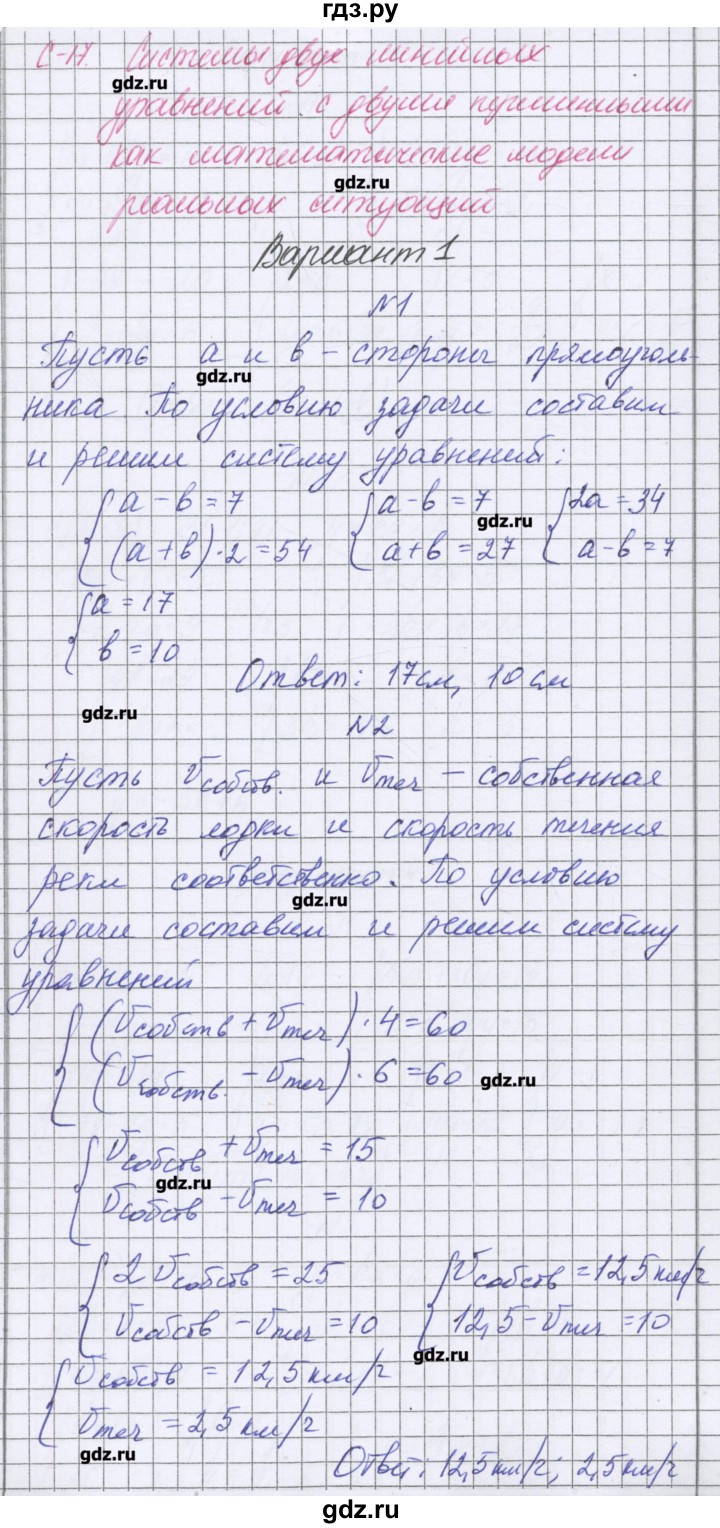 гдз.ру
С-17. Системы двух линейных
gdz.ru
уравнений с двумя переменными
как математические модели
gdz.ru
реальных ситуаций
Вариант 1
№1
Пусть a и b – стороны прямоуголь-
gdz.ru
ника По условию задачи составим
и решим систему уравнений:
{ a - b = 7 { a - b = 7 { 2a = 34
gdz.ru
(a + b) · 2 = 54 a + b = 27 a - b = 7
{ a = 17
b = 10
Ответ: 17 см, 10 см
gdz.ru
№2
Пусть Vсобств. и Vтеч – собственная
скорость лодки и скорость течения
реки соответственно. По условию
gdz.ru
задачи составим и решим систему
уравнений
{ (Vсобств + Vтеч) · 4 = 60
(Vсобств. - Vтеч) · 6 = 60
gdz.ru
{ Vсобств + Vтеч = 15
gdz.ru
Vсобств - Vтеч = 10
{ 2Vсобств = 25 { Vсобств = 12,5 км/г
Vсобств - Vтеч = 10 12,5 - Vтеч = 10
gdz.ru
{ Vсобств = 12,5 км/г
Vтеч = 2,5 км/г
gdz.ru
Ответ: 12,5 км/г; 2,5 км/г
gdz.ru